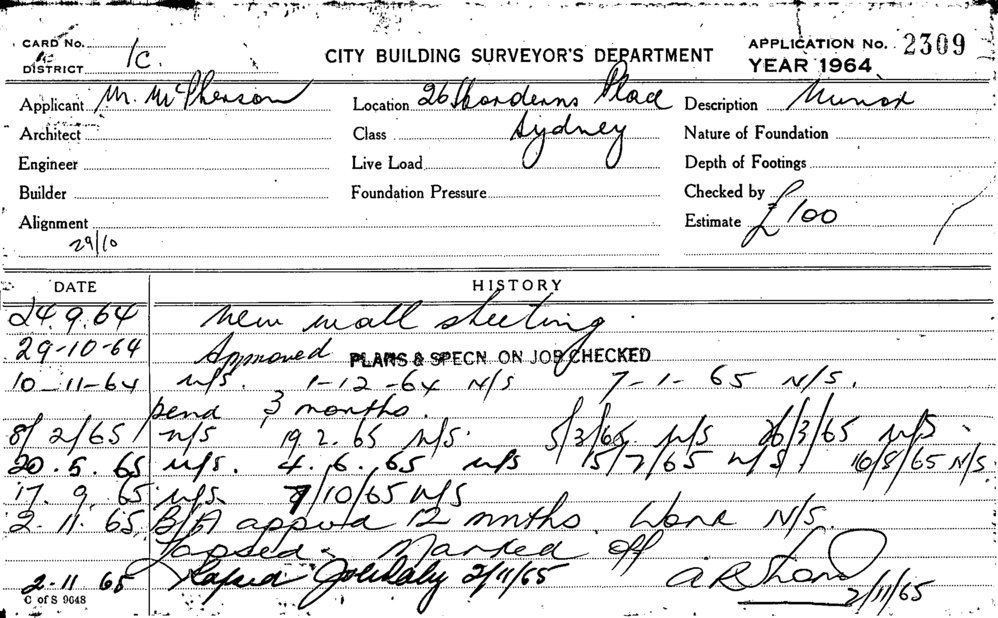 CARD No. 1C. CITY BUILDING SURVEYOR'S DEPARTMENT APPLICATION No. 2309
DISTRICT YEAR 1964
Applicant M. McPherson Location 26 Hordern's Place Description Minor
Architect Class Sydney Nature of Foundation
Engineer Live Load Depth of Footings
Builder Foundation Pressure Checked by
Alignment Estimate £100
29/10
DATE HISTORY
24.9.64 New wall sheeting.
29-10-64 Approved PLANS & SPECN ON JOB CHECKED
10-11-64 N/S. 1-12-64 N/S 7-1-65 N/S.
pend 3 months.
8/2/65 N/S 19.2.65 N/S. 5/3/65 N/S 26/3/65 N/S.
20.5.65 N/S. 4.6.65 N/S 15/7/65 N/S. 16/8/65 N/S.
17.9.65 N/S. 7/10/65 N/S
2.11.65 B/A approved 12 months. Work N/S.
Lapsed. Marked off
2-11 65 Lapsed 2/11/65 2/11/65
C of S 9648